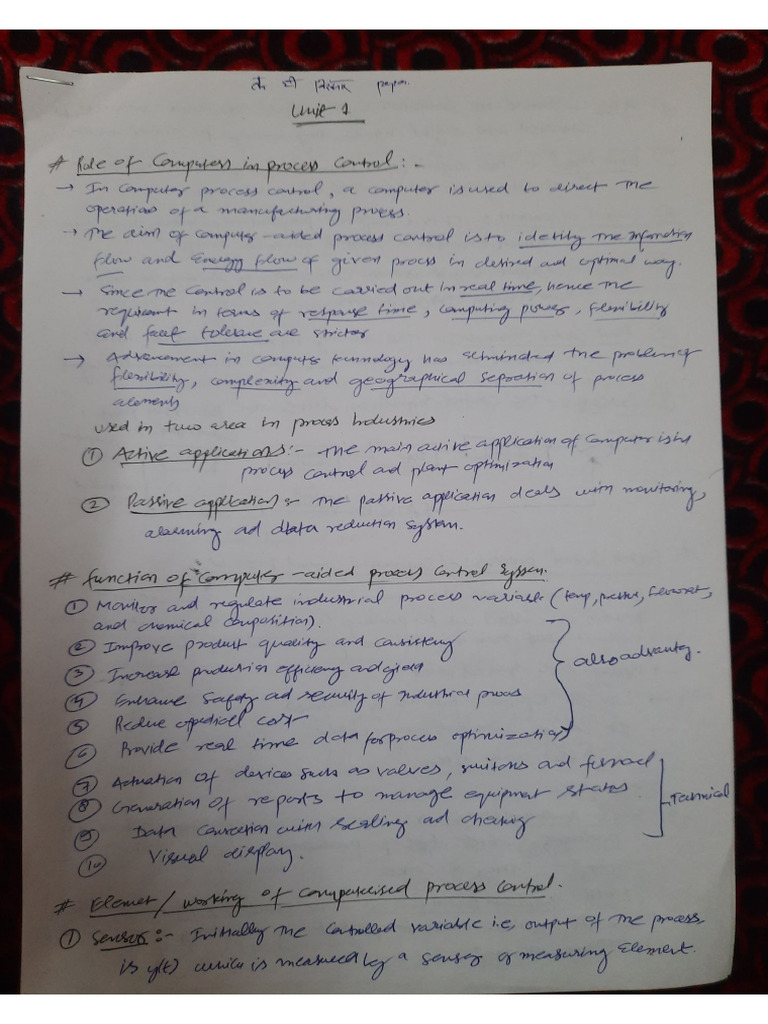 paper.
Unit 1
# Role of Computers in process Control:-
→ In Computer process control, a computer is used to direct the
operations of a manufacturing process.
→ The aim of computer-aided process control is to identify the information
flow and Energy flow of given process in desired and optimal way.
→ Since the control is to be carried out in real time, hence the
requirement in terms of response time, computing power, flexibility
and fault tolerance are stricter
→ Advancement in computer technology has the problem of
flexibility, complexity and geographical separation of process
elements
used in two area in process Industries
① Active applications:- The main active application of Computer is in
process control ad plant optimization
② Passive application:- The passive application deals with monitoring,
alarming ad data reduction system.
# function of computer-aided process Control System.
① Monitor and regulate industrial process variable (temp, pressure, flowrate,
and chemical composition).
② Improve product quality and consistency
③ Increase production efficiency and yield
④ Enhance safety ad security of industrial process
⑤ Reduce cost
⑥ Provide real time data for process optimization
also advantg.
⑦ Actuation of devices such as valves, switches and
⑧ Generation of reports to manage equipment status
⑨ Data with scaling ad checking
Technical
⑩ Visual display.
# Element/working of computerised process control.
① Sensors:- Initially the controlled variable i.e, output of the process,
is y(t) which is measured by a sensor or measuring Element.